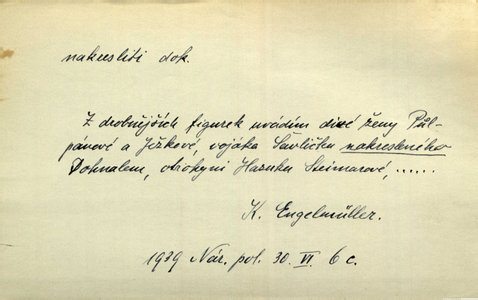 nakreslili dok.
Z drobnějších figurek uvádím divé ženy Půl-
pánové a Jížkové, vojáka Šavličku nakresleného
Dohnalem, otrokyni Hazuku Steimarové, ......
K. Engelmüller.
1939 Nár. pol. 30. VI. 6 c.